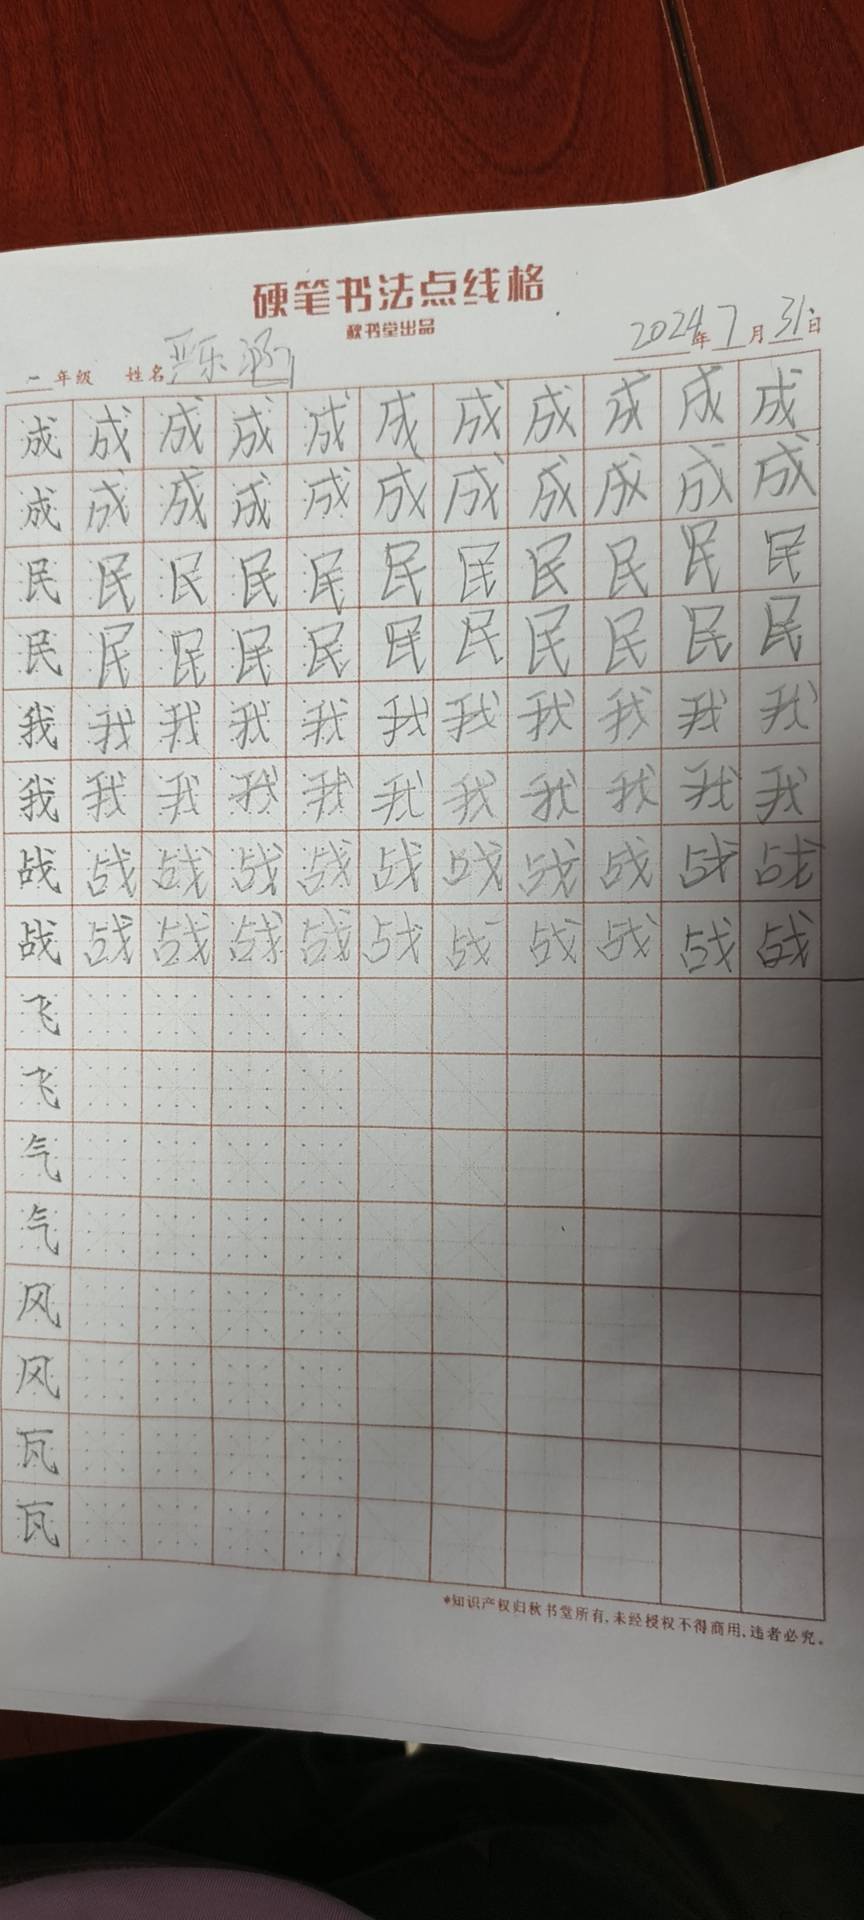 硬笔书法点线格
秋书堂出品
一年级 姓名严乐涵 2024年7月31日
成成成成成成成成成成成
成成成成成成成成成成成
民民民民民民民民民民民
民民民民民民民民民民民
我我我我我我我我我我我
我我我我我我我我我我我
战战战战战战战战战战战
战战战战战战战战战战战
飞
飞
气
气
风
风
瓦
瓦
*知识产权归秋书堂所有,未经授权不得商用,违者必究。